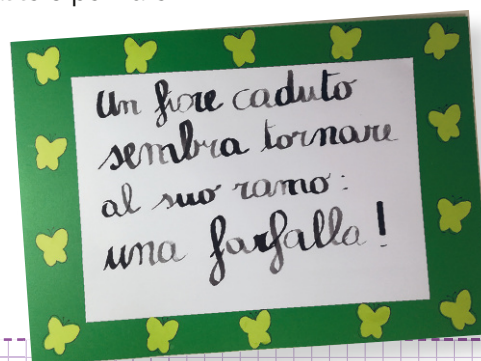 Un fiore caduto
sembra tornare
al suo ramo:
una farfalla!